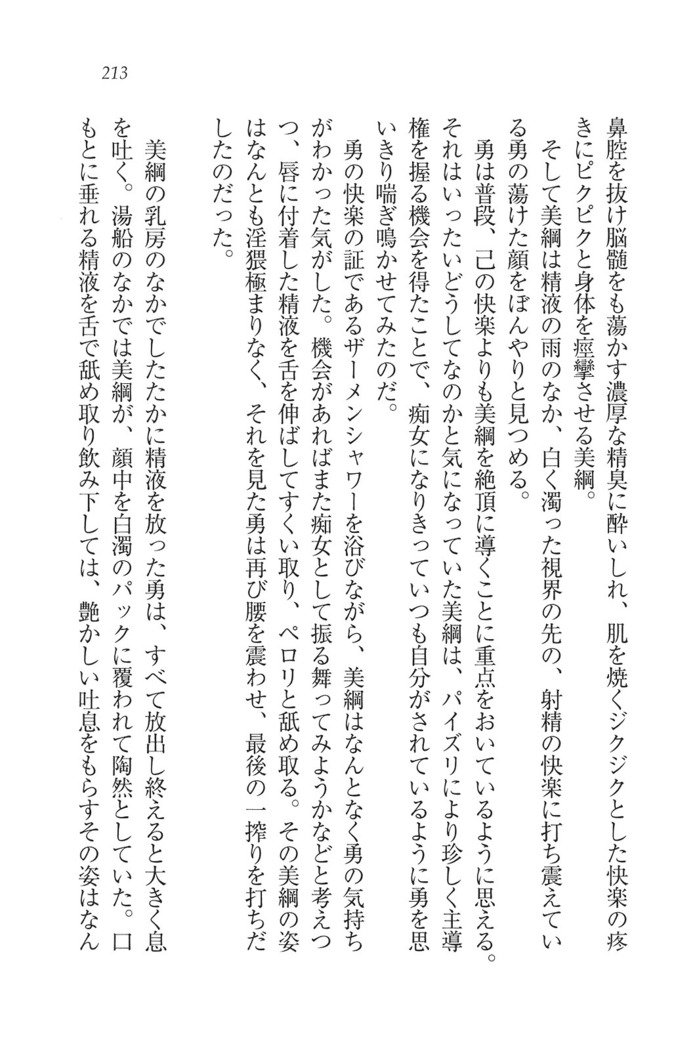 213
鼻腔を抜け脳髄をも蕩かす濃厚な精臭に酔いしれ、肌を焼くジクジクとした快楽の疼
きにピクピクと身体を痙攣させる美綱。
そして美綱は精液の雨のなか、白く濁った視界の先の、射精の快楽に打ち震えてい
る勇の蕩けた顔をぼんやりと見つめる。
勇は普段、己の快楽よりも美綱を絶頂に導くことに重点をおいているように思える。
それはいったいどうしてなのかと気になっていた美綱は、パイズリにより珍しく主導
権を握る機会を得たことで、痴女になりきっていつも自分がされているように勇を思
いきり喘ぎ鳴かせてみたのだ。
勇の快楽の証であるザーメンシャワーを浴びながら、美綱はなんとなく勇の気持ち
がわかった気がした。機会があればまた痴女として振る舞ってみようかなどと考えつ
つ、唇に付着した精液を舌を伸ばしてすくい取り、ペロリと舐め取る。その美綱の姿
はなんとも淫猥極まりなく、それを見た勇は再び腰を震わせ、最後の一搾りを打ちだ
したのだった。
美綱の乳房のなかでしたたかに精液を放った勇は、すべて放出し終えると大きく息
を吐く。湯船のなかでは美綱が、顔中を白濁のパックに覆われて陶然としていた。口
もとに垂れる精液を舌で舐め取り飲み下しては、艶かしい吐息をもらすその姿はなん